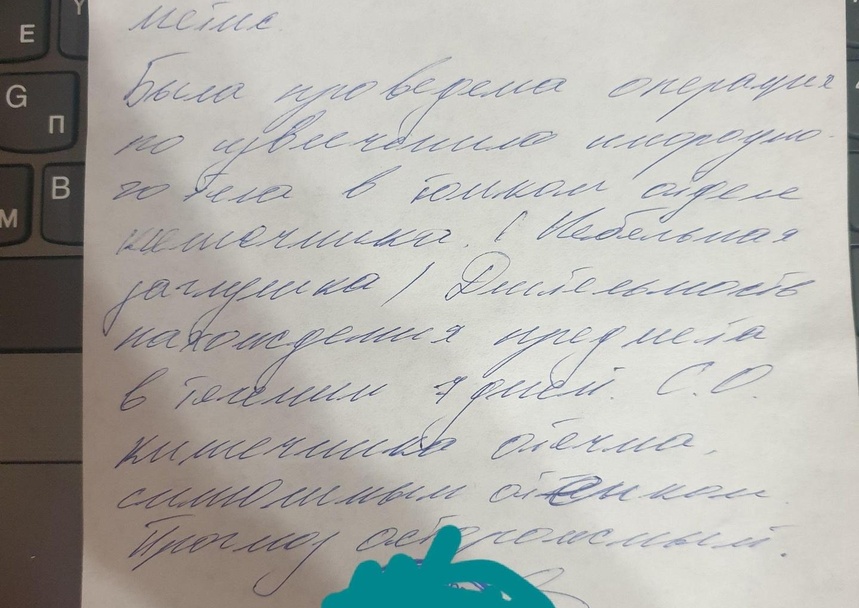 метис.
Была проведена операция
по извлечению инородно-
го тела в тонком отделе
кишечника. ( Мебельная
заглушка ) Длительность
нахождения предмета
в течении 7 дней. С.О.
кишечника отечна,
с синюшным оттенком.
Прогноз осторожный.
E
Y
G
П
M
В